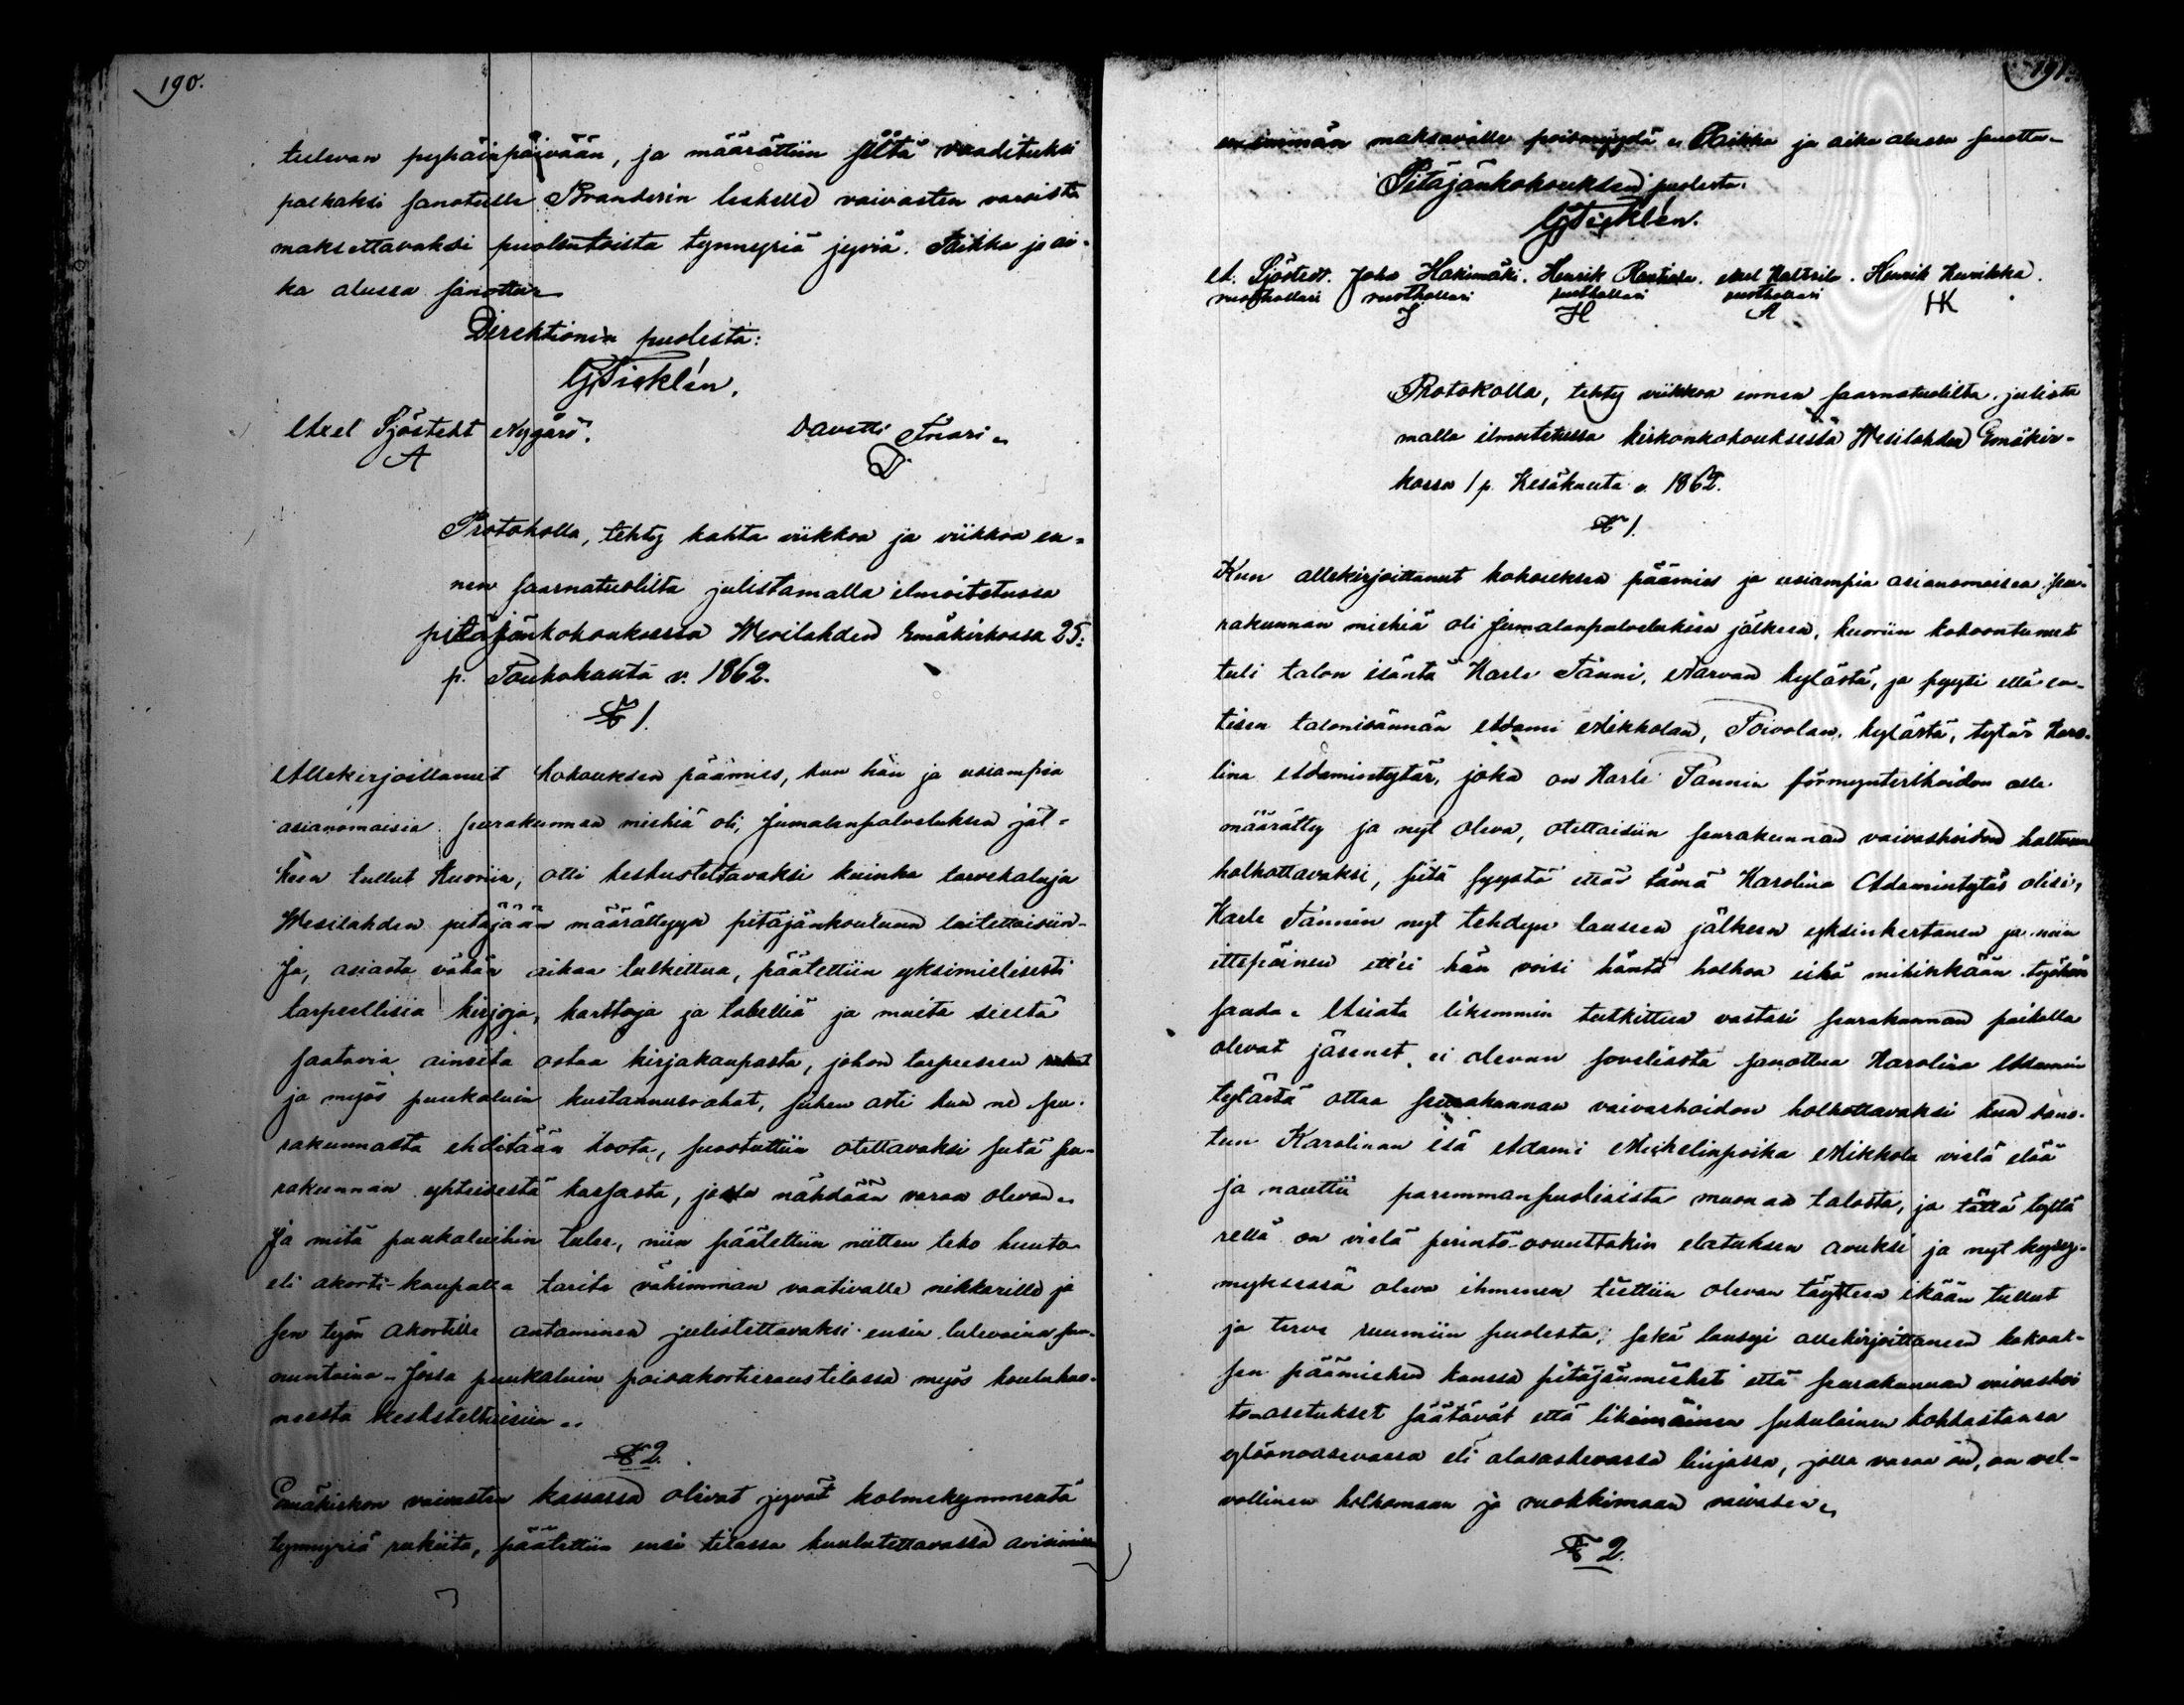 190.
tulevan pyhäinpäivään, ja määrättiin siltä vaadituksi
palkaksi sanotulle Branderin leskelle vaivasten varoista
maksettavaksi puolentoista tynnyriä jyviä. Paikka ja ai-
ka alussa sanottu
Direktionin puolesta:
G Ticklén.
Axel Sjöstedt Nygård. Davetti Anari
A D
Protokolla, tehty kahta viikkoa ja viikkoa en-
nen saarnatuolilta julistamalla ilmoitetussa
pitäjänkokouksessa Wesilahden Emäkirkossa 25.
p. Toukokuuta v. 1862.
§ 1.
Allekirjoittanut kokouksen päämies, kun hän ja usiampia
asianomaisia seurakunnan miehiä oli, Jumalanpalveluksen jäl-
keen tullut Kuoriin, otti keskusteltavaksi kuinka tarvekaluja
Wesilahden pitäjään määrättyyn pitäjänkouluun laitettaisiin.
Ja, asiasta vähän aikaa tutkittua, päätettiin yksimielisesti
tarpeellisia kirjoja, karttoja ja tabelliä ja muita siestä
saatavia aineita ostaa kirjakaupasta, johon tarpeeseen rahat
ja myös puukaluin kustannusrahat, siihen asti kun ne seu-
rakunnasta ehditään koota, suostuttiin otettavaksi sitä seu-
rakunnan yhteisestä kassasta, josta nähdään varaa olevan.
Ja mitä puukaluihin tulee, niin päätettiin niitten teko huuto
eli akorti-kaupalla tarita vähimmän vaativalle nikkarille ja
sen työn akortille antaminen julistettavaksi ensin tulevaina sun-
nuntaina. Jossa puukaluin poisakorteraustilassa myös kouluhuo-
neesta keskusteltaisiin.
§ 2.
Emäkirkon vaivasten kassassa olivat jyvät kolmekymmentä
tynnyriä rukiita, päätettiin ensi tilassa kuulutettavassa
191.
enimmän maksavalle poismyydä. Paikka ja aika alussa sanottu
Pitäjänkokouksen puolesta:
G Ticklén.
A. Sjöstedt. Joho Hakimäki. Henrik Rantala. Axel Kaltsila. Henrik Kurikka.
ruothollari ruothollari ruothollari ruothollari
J H A HK
Protokolla, tehty viikkoa ennen saarnatuolilta julista
malla ilmoitetussa kirkonkokouksessa Wesilahden Emäkir-
kossa 1 p. Kesäkuuta v. 1862.
§ 1.
Kun allekirjoittanut kokouksen päämies ja usiampia asianomaisen seu-
rakunnan miehiä oli Jumalanpalveluksen jälkeen, kuoriin kokoontunut
tuli talon isäntä Karle Tanni, Narvan kylästä, ja pyysi että en-
tisen talonisännän Adami Mikkolan, Toivolan kylästä, tytär Karo-
lina Adamintytär, joka on Karle Tannin förmynterihoidon alle
määrätty ja nyt oleva, otettaisiin seurakunnan vaivashoidon haltuun
holhottavaksi, siitä syystä että tämä Karolina Adamintytär olisi,
Karle Tannin nyt tehdyn lauseen jälkeen yksinkertanen ja niin
ittepäinen ett'ei hän voisi häntä holhoa eikä mihinkään työhön
saada. Asiata likemmin tutkittua vastasi seurakunnan paikalla
olevat jäsenet, ei olevan soveliasta sanottua Karolina Adamin
tytärtä ottaa seurakunnan vaivashoidon holhottavaksi kun sano-
tun Karolinan isä Adami Mickelinpoika Mikkola vielä elää
ja nauttii paremmanpuolisista muonaa talosta, ja tällä tyttä
rellä on vielä perintö-osuuttakin elatuksen avuksi ja nyt kysy-
myksessä oleva ihminen tiettiin olevan täyteen ikään tullut
ja terve ruumiin puolesta; sekä lausui allekirjoittaneen kokouk-
sen päämiehen kanssa pitäjänmiehet että seurakunnan vaivashoi
to-asetukset säätävät että likimäinen sukulainen kohdastansa
ylösnousevassa eli alasaskevassa linjassa, jolla varaa on, on vel-
vollinen holhomaan ja ruokkimaan vaivasen.
§ 2.